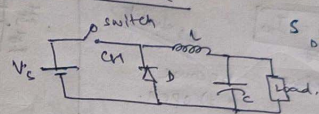 switch
L
S
D
Vs
CH
D
C
Load.